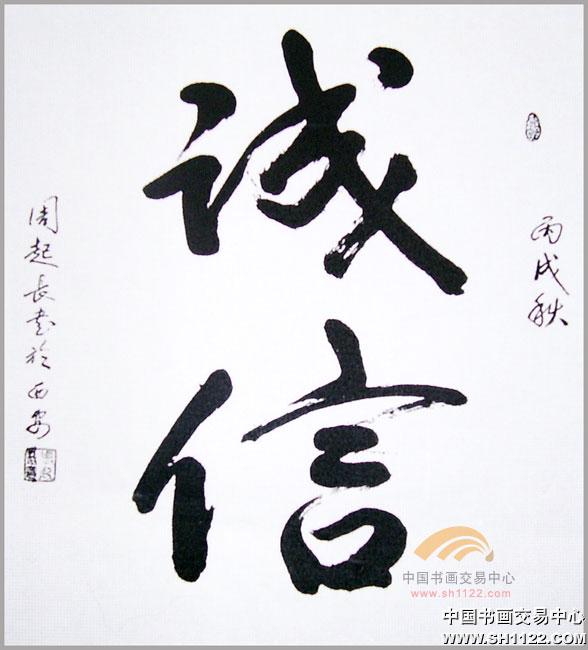 诚信
丙戌秋
周起长书於西安
中国书画交易中心
www.sh1122.com
中国书画交易中心
WWW.SH1122.COM